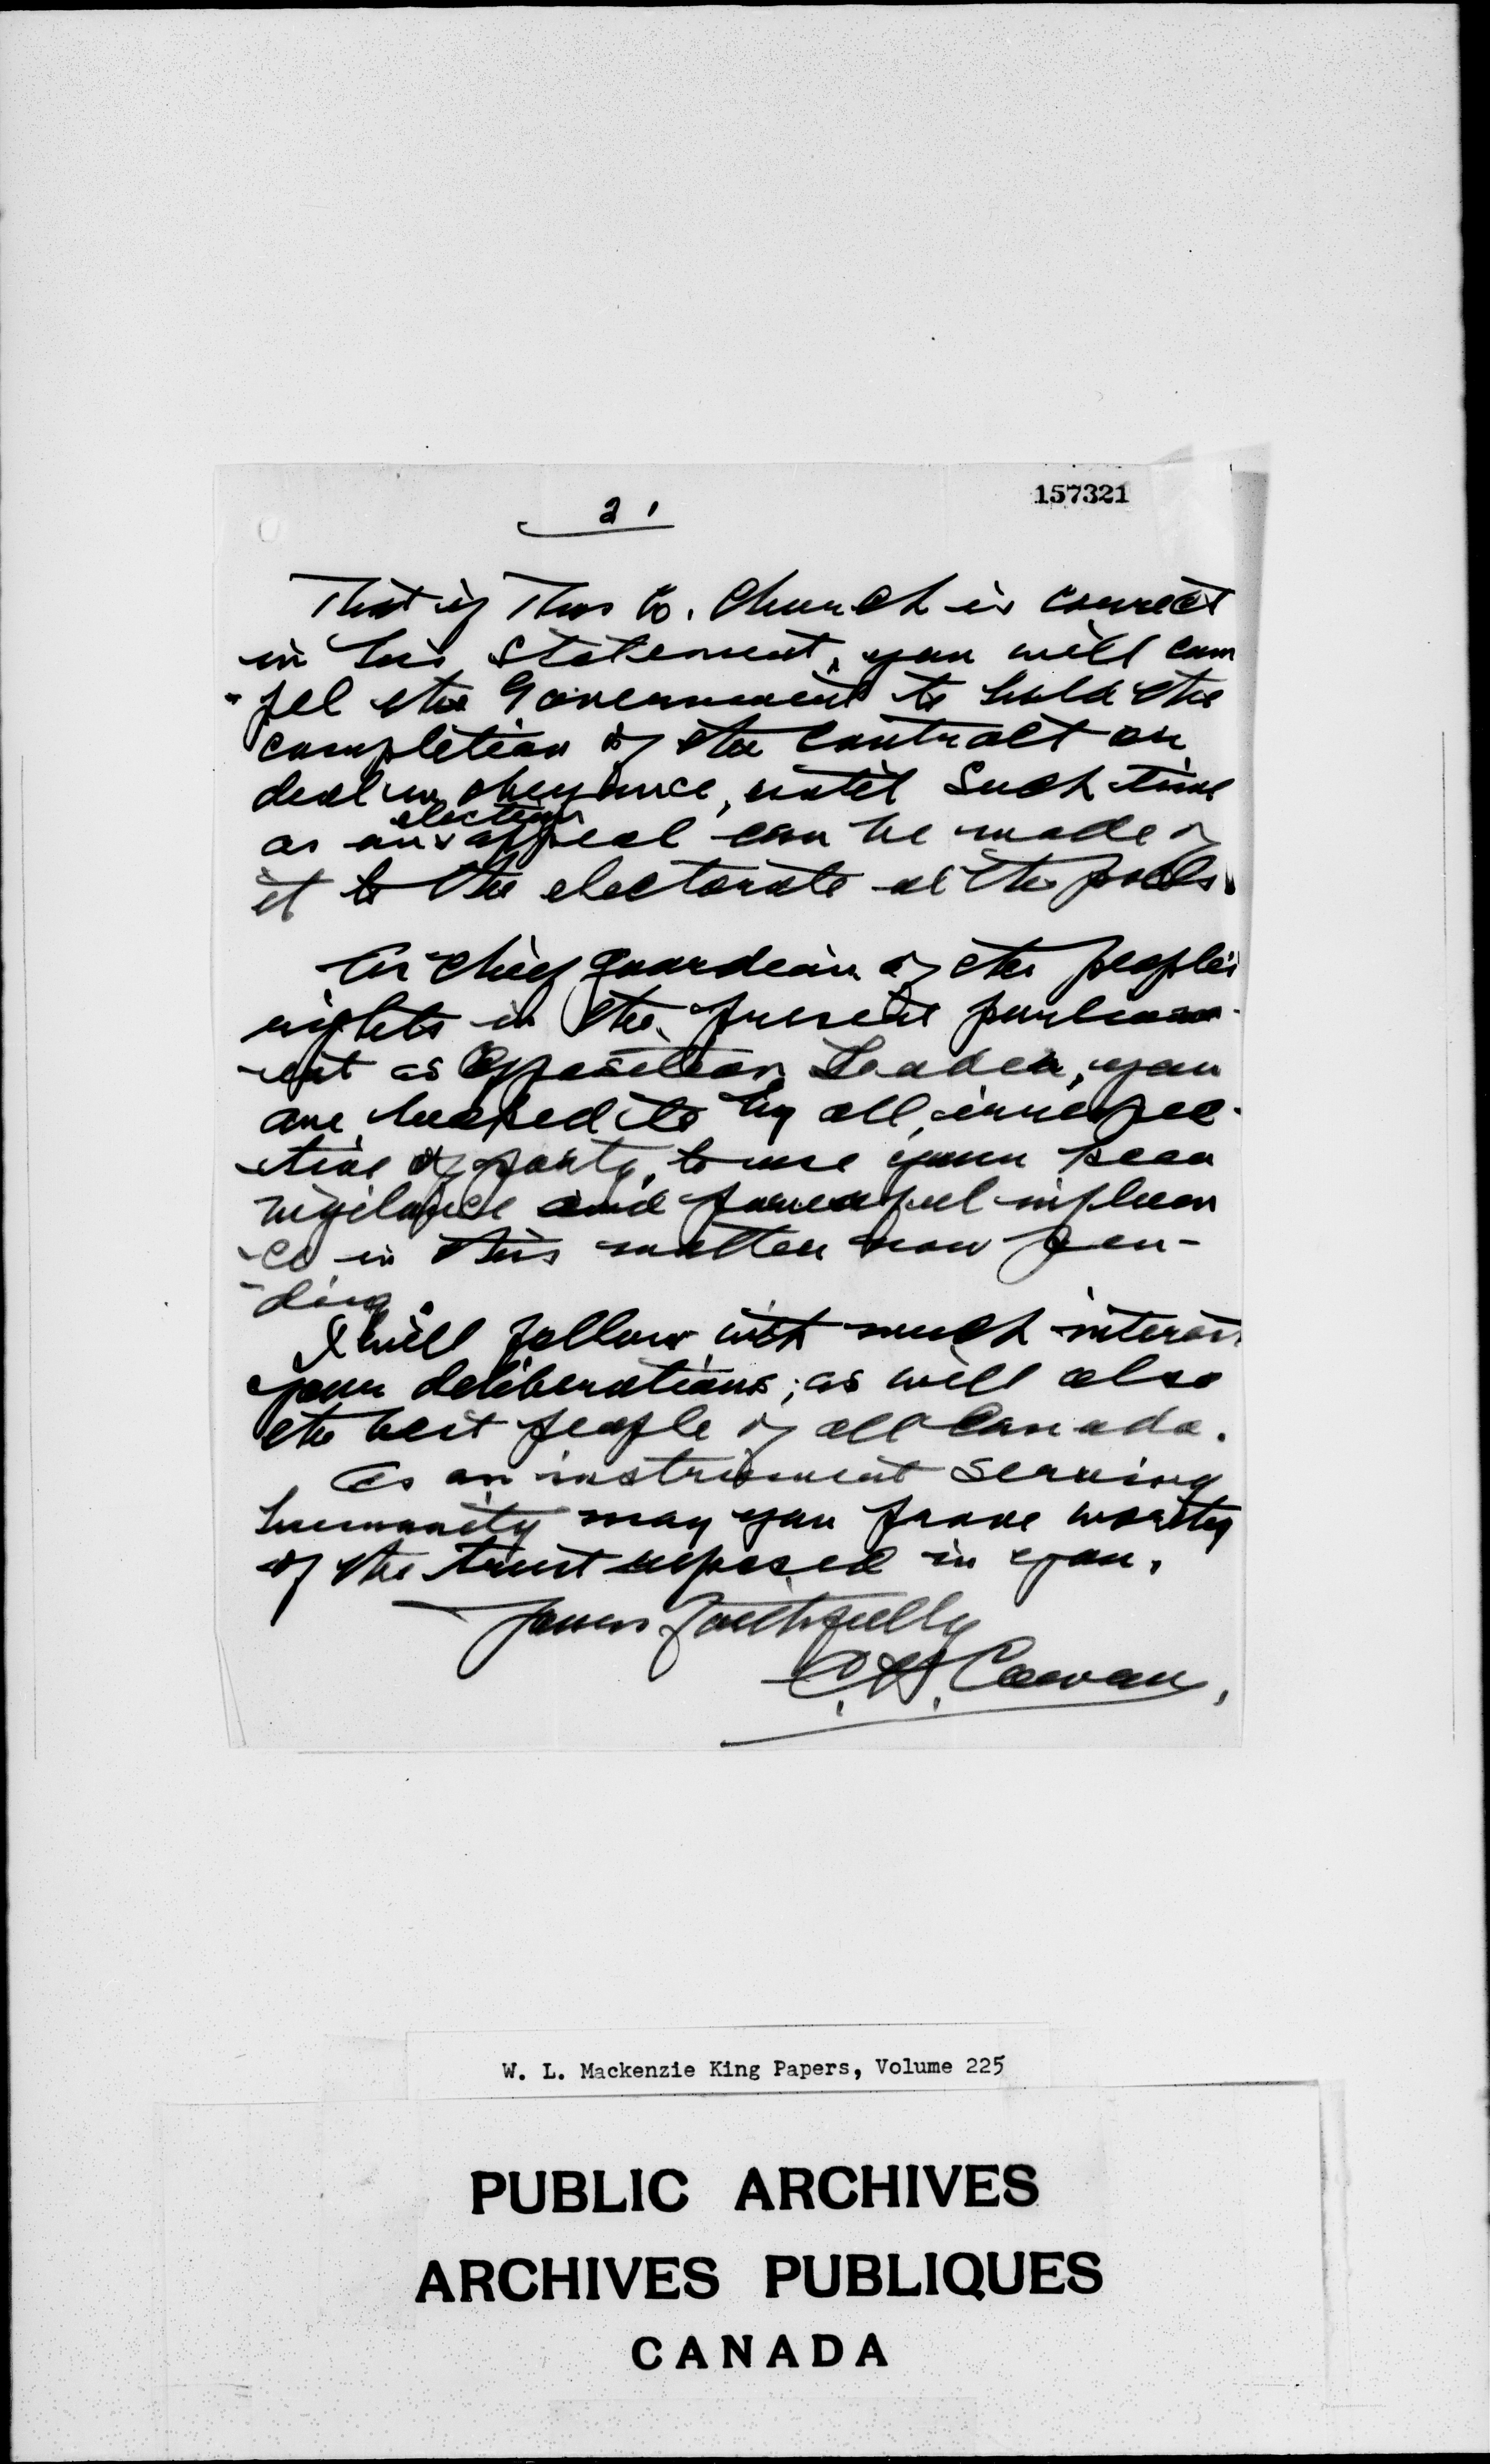 157321
2.
That if Thos. Church is correct
in his statement, you will com
-pel the Government to hold the
completion of the contract or
deal in abeyance, until such time
as an election appeal can be made of
it to the electorate at the polls.
As chief guardian of the people's
rights in the present parliam-
-ent as Opposition Leader, you
are looked to by all, irrespec-
-tive of party, to use your keen
vigilance and powerful influen
-ce in this matter now pen-
-ding.
I will follow with much interest
your deliberations; as will also
the best people of all Canada.
As an instrument serving
humanity may you prove worthy
of the trust reposed in you.
Yours faithfully
C.H. Cowan,
W. L. Mackenzie King Papers, Volume 225
PUBLIC ARCHIVES
ARCHIVES PUBLIQUES
CANADA